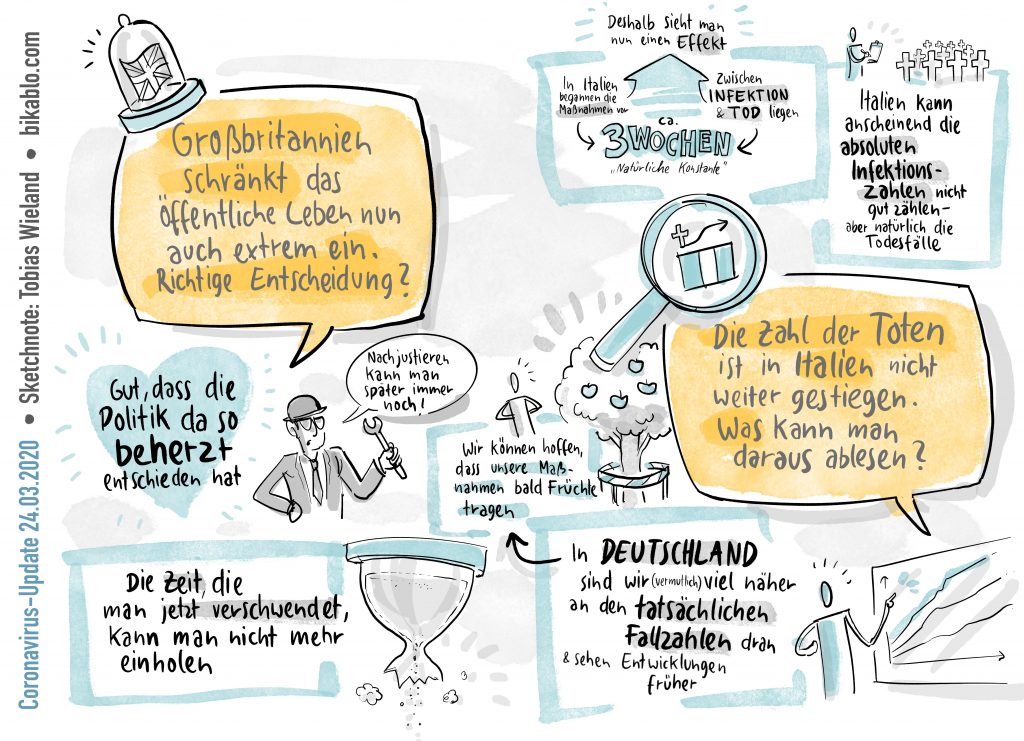 Coronavirus-Update 24.03.2020 • Sketchnote: Tobias Wieland • bikablo.com
Großbritannien
schränkt das
öffentliche Leben nun
auch extrem ein.
Richtige Entscheidung?
Gut, dass die
Politik da so
beherzt
entschieden hat
Nachjustieren
kann man
später immer
noch!
Die Zeit, die
man jetzt verschwendet,
kann man nicht mehr
einholen
Deshalb sieht man
nun einen Effekt
In Italien
begannen die
Maßnahmen vor
Zwischen
INFEKTION
& TOD liegen
ca.
3 WOCHEN
„Natürliche Konstante"
Italien kann
anscheinend die
absoluten
Infektions-
zahlen nicht
gut zählen-
aber natürlich die
Todesfälle
Die Zahl der Toten
ist in Italien nicht
weiter gestiegen.
Was kann man
daraus ablesen?
Wir können hoffen,
dass unsere Maß-
nahmen bald Früchte
tragen
In DEUTSCHLAND
sind wir (vermutlich) viel näher
an den tatsächlichen
Fallzahlen dran
& sehen Entwicklungen
früher